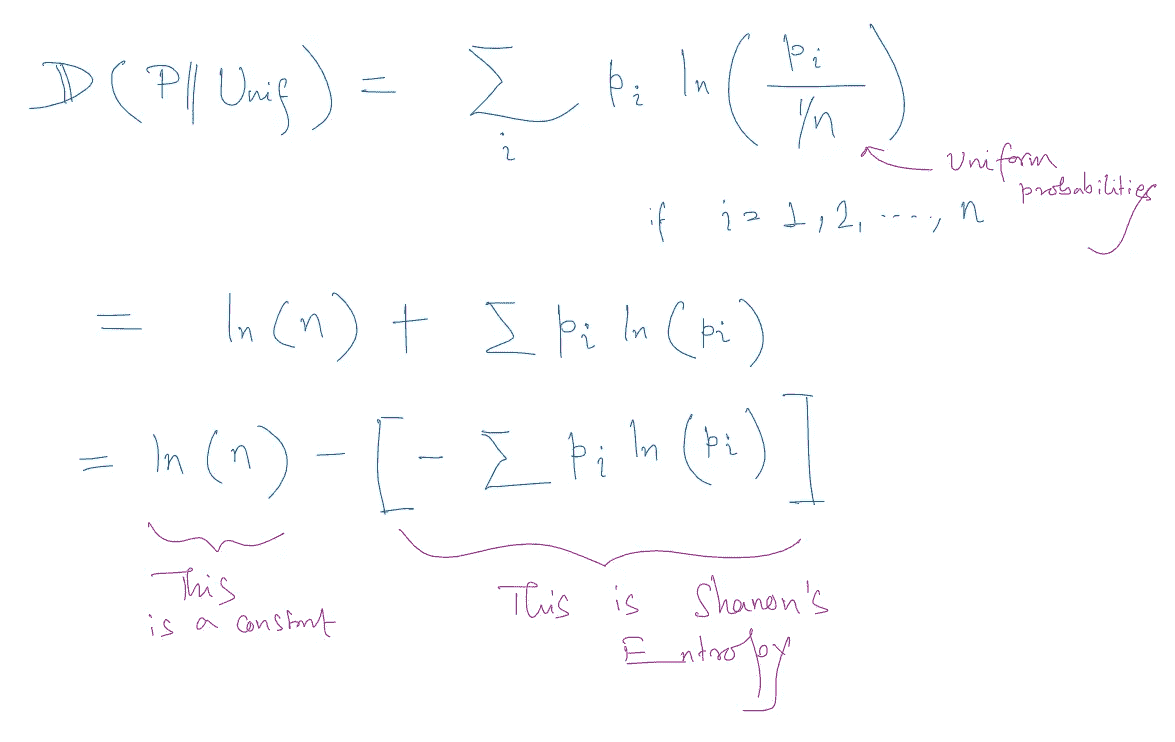 D(P‖Unif) = Σ_i p_i ln(p_i / (1/n))
Uniform
probabilities
if i = 1, 2, ...., n
= ln(n) + Σ p_i ln(p_i)
= ln(n) - [- Σ p_i ln(p_i)]
This
is a constant
This is Shanon's
Entropy